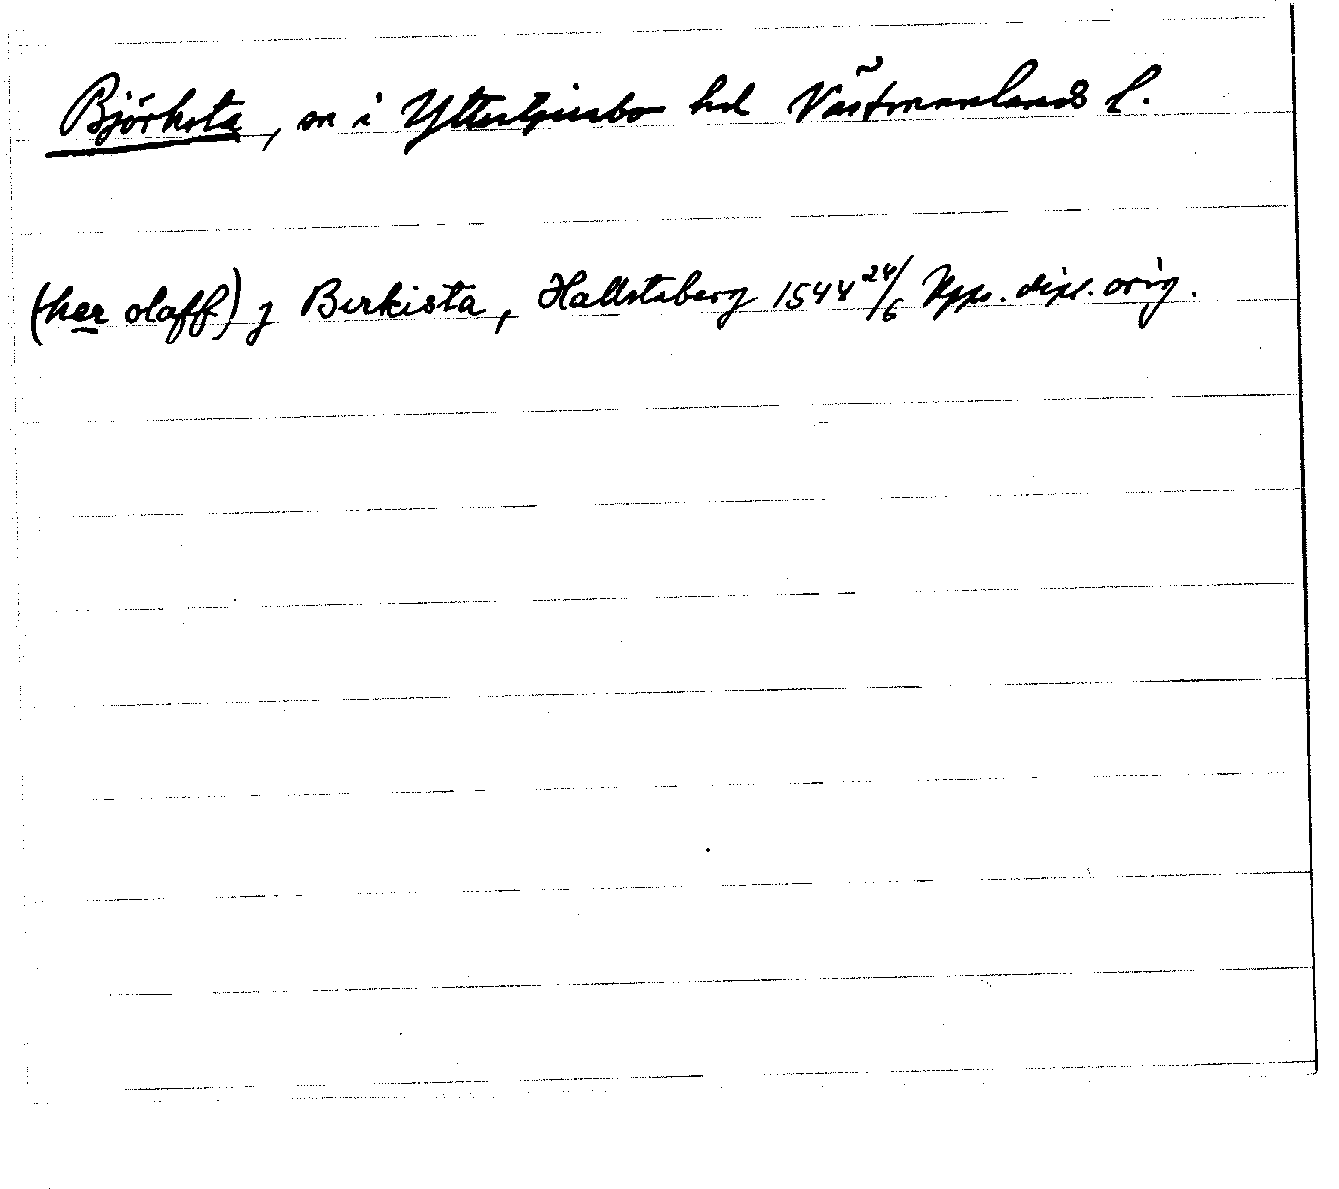 Björksta, sn i Yttertjurbo hd Västmanlands l.
(her olaff) j Birkista, Hallstaberg 1544 24/6 Upps. dipl. orig.